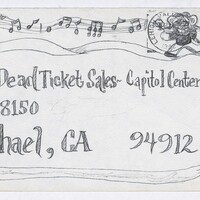 Dead Ticket Sales~ Capitol Center
8150
hael, CA 94912